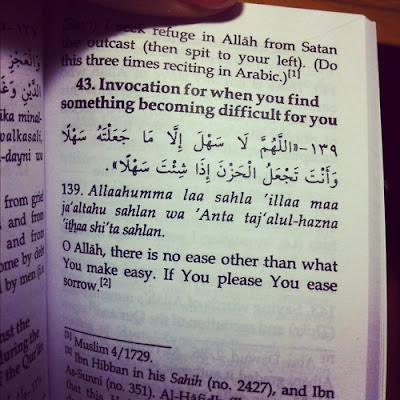 (Say:) I seek refuge in Allâh from Satan
the outcast (then spit to your left). (Do
this three times reciting in Arabic.)[1]
43. Invocation for when you find
something becoming difficult for you
١٣٩-«اللَّهُمَّ لَا سَهْلَ إِلَّا مَا جَعَلْتَهُ سَهْلًا
وَأَنْتَ تَجْعَلُ الْحَزْنَ إِذَا شِئْتَ سَهْلًا».
139. Allaahumma laa sahla 'illaa maa
ja'altahu sahlan wa 'Anta taj'alul-hazna
'ithaa shi'ta sahlan.
O Allâh, there is no ease other than what
You make easy. If You please You ease
sorrow.[2]
[1] Muslim 4/1729.
[2] Ibn Hibban in his Sahih (no. 2427), and Ibn
As-Sunni (no. 351). Al-Hâfidh
that this
١٣٧-
وَالْعَجْزِ
الدَّيْنِ
minal-
walkasali,
-dayni wa
from grief
, and from
and from
ome by debt
by men (i.e
inst the
during the
of the Qur'ân